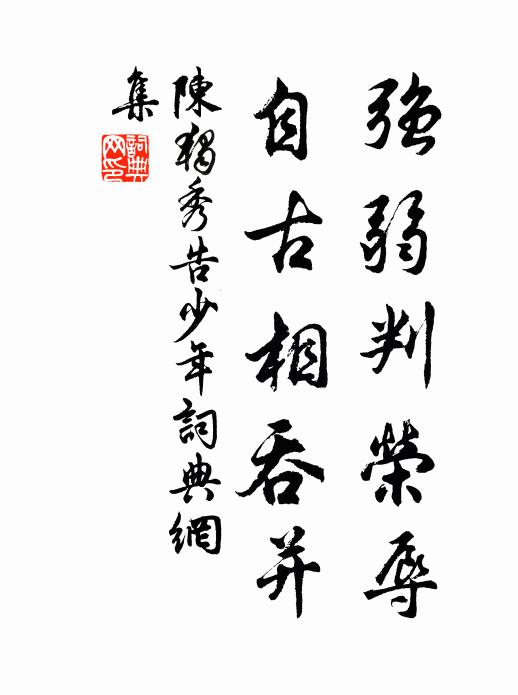 強弱判榮辱
自古相吞并
陳獨秀告少年詞典網
集
詞典
网印